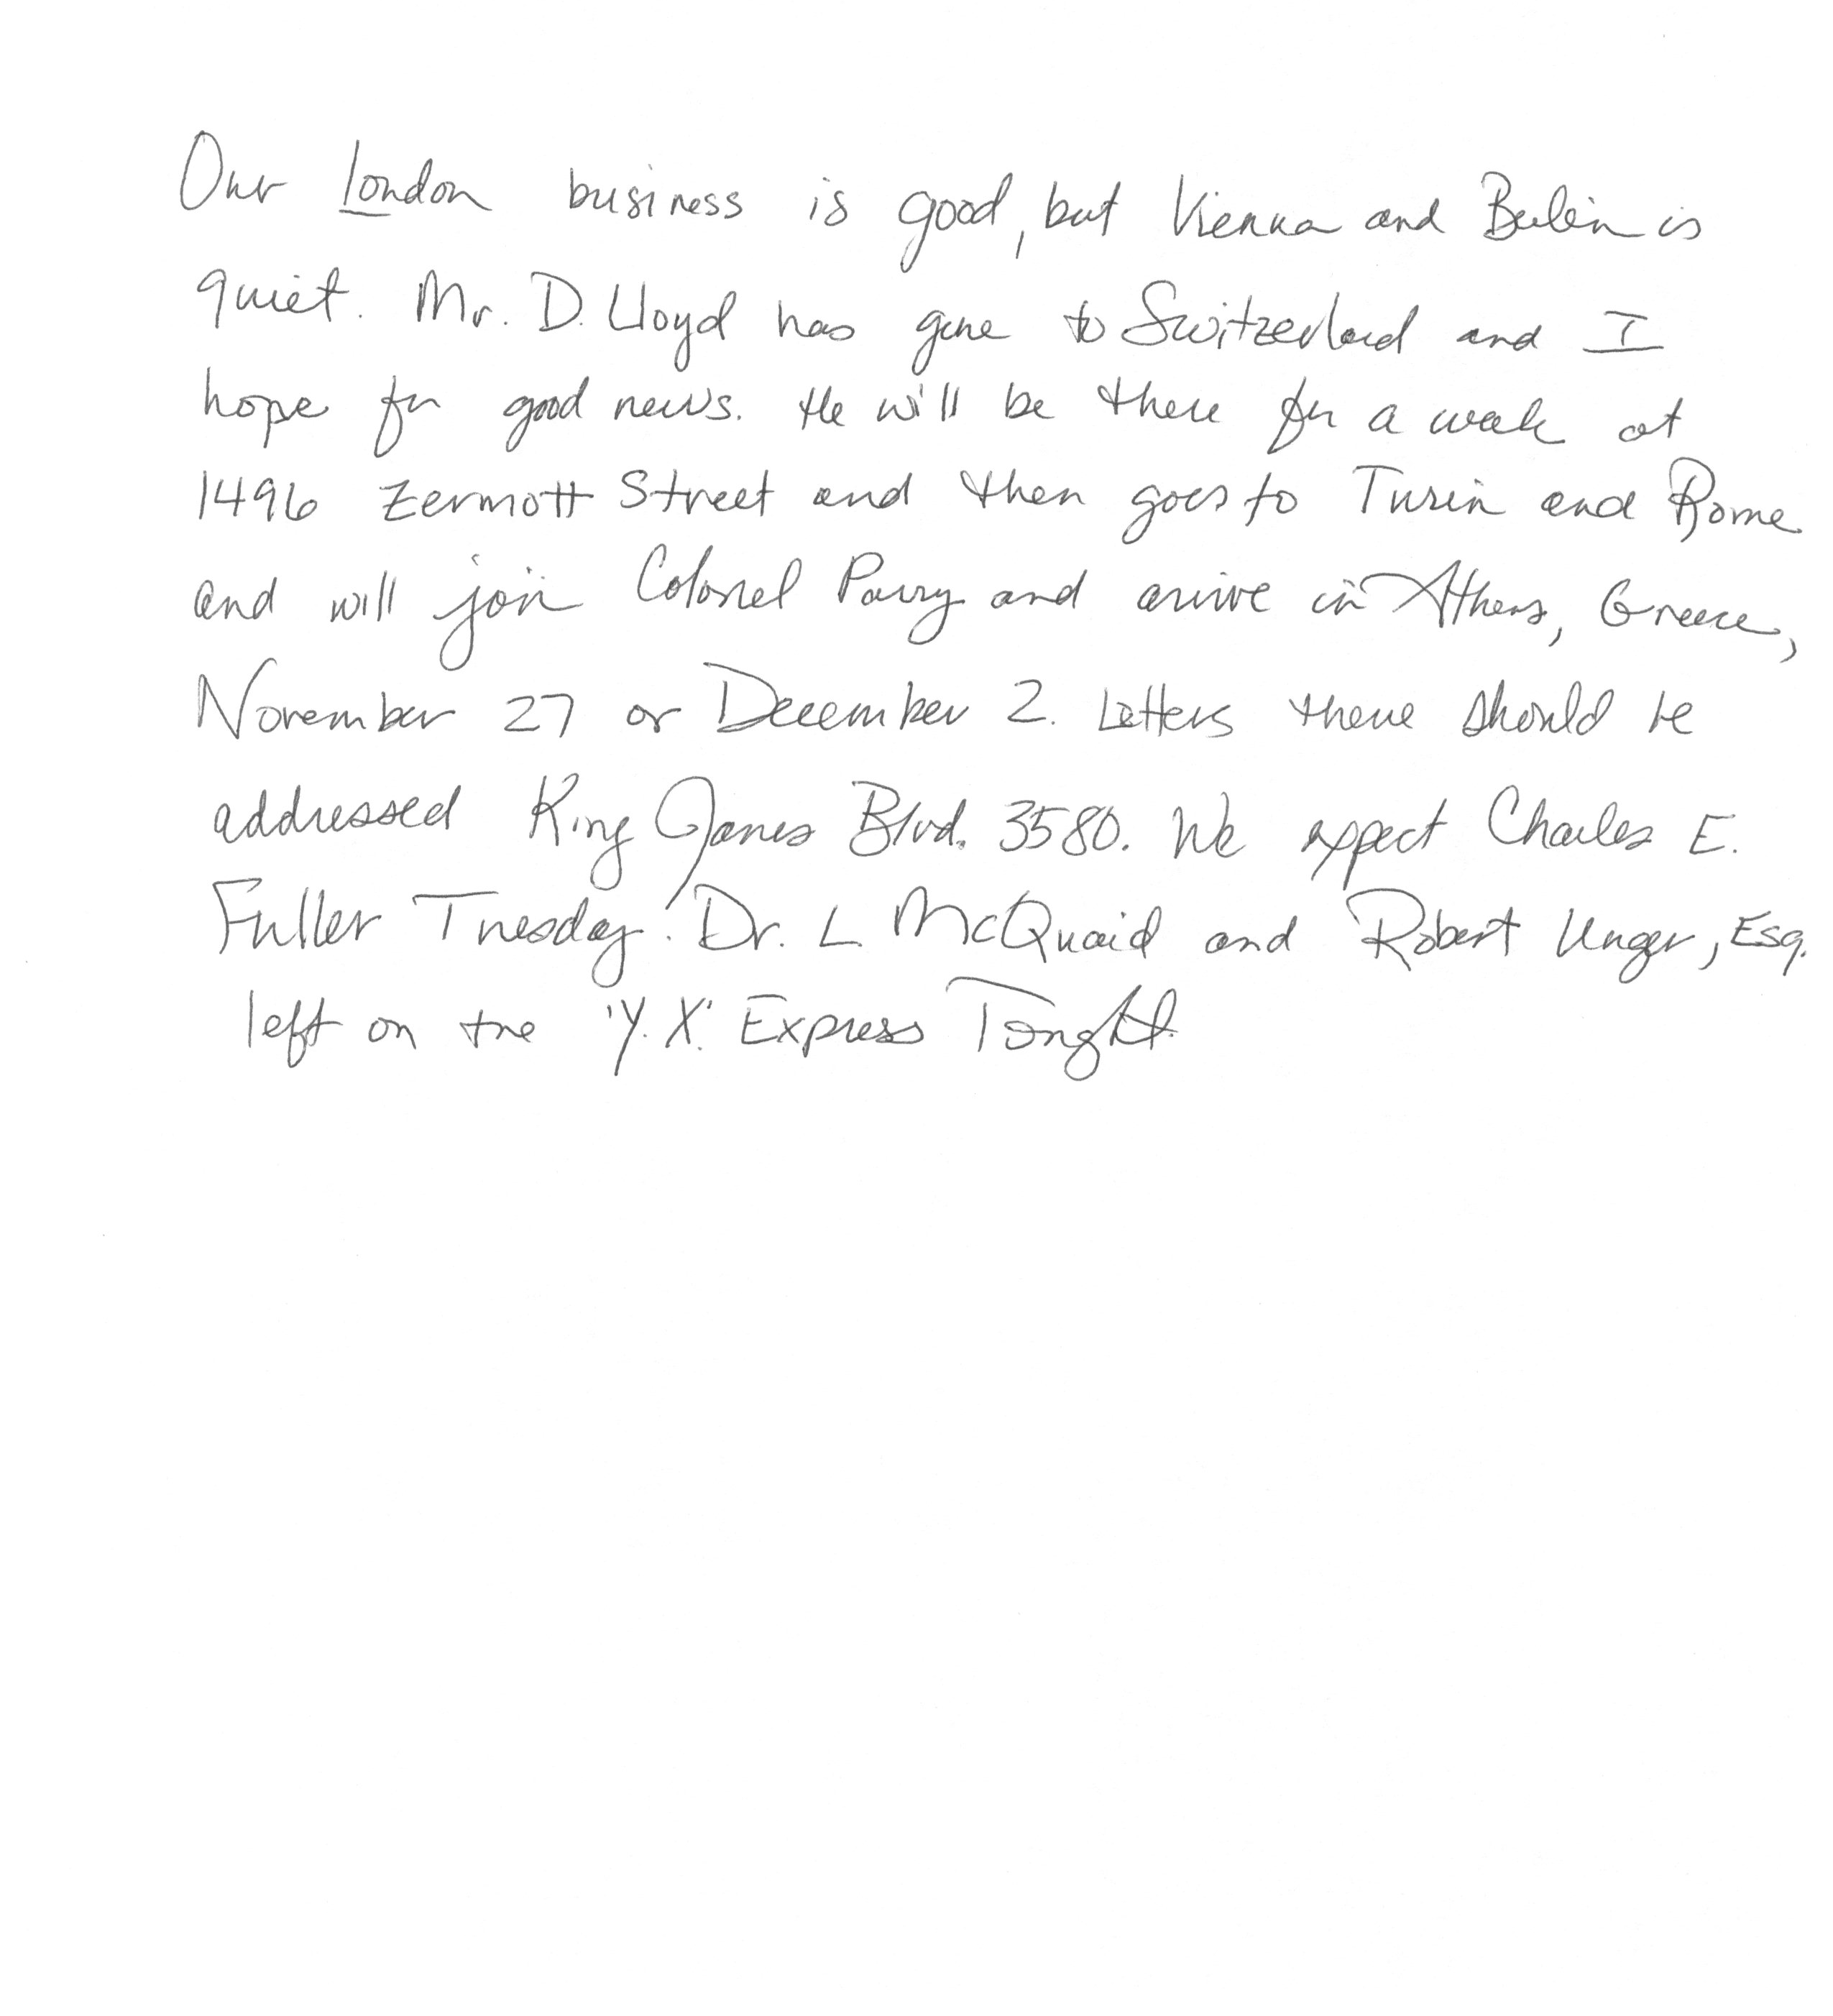 Our London business is good, but Vienna and Berlin is
quiet. Mr. D. Lloyd has gone to Switzerland and I
hope for good news. He will be there for a week at
1496 Zermott Street and then goes to Turin and Rome
and will join Colonel Parry and arrive in Athens, Greece,
November 27 or December 2. Letters there should be
addressed King James Blvd. 3580. We expect Charles E.
Fuller Tuesday. Dr. L McQuaid and Robert Unger, Esq.
left on the 'Y.X.' Express Tonight.